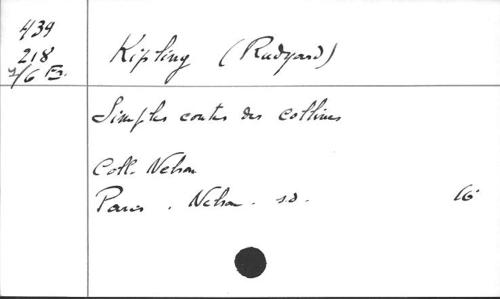 434
218
Kipling (Rudyard)
Simples contes des collines
Coll. Nelson
Paris . Nelson . s.d. 16